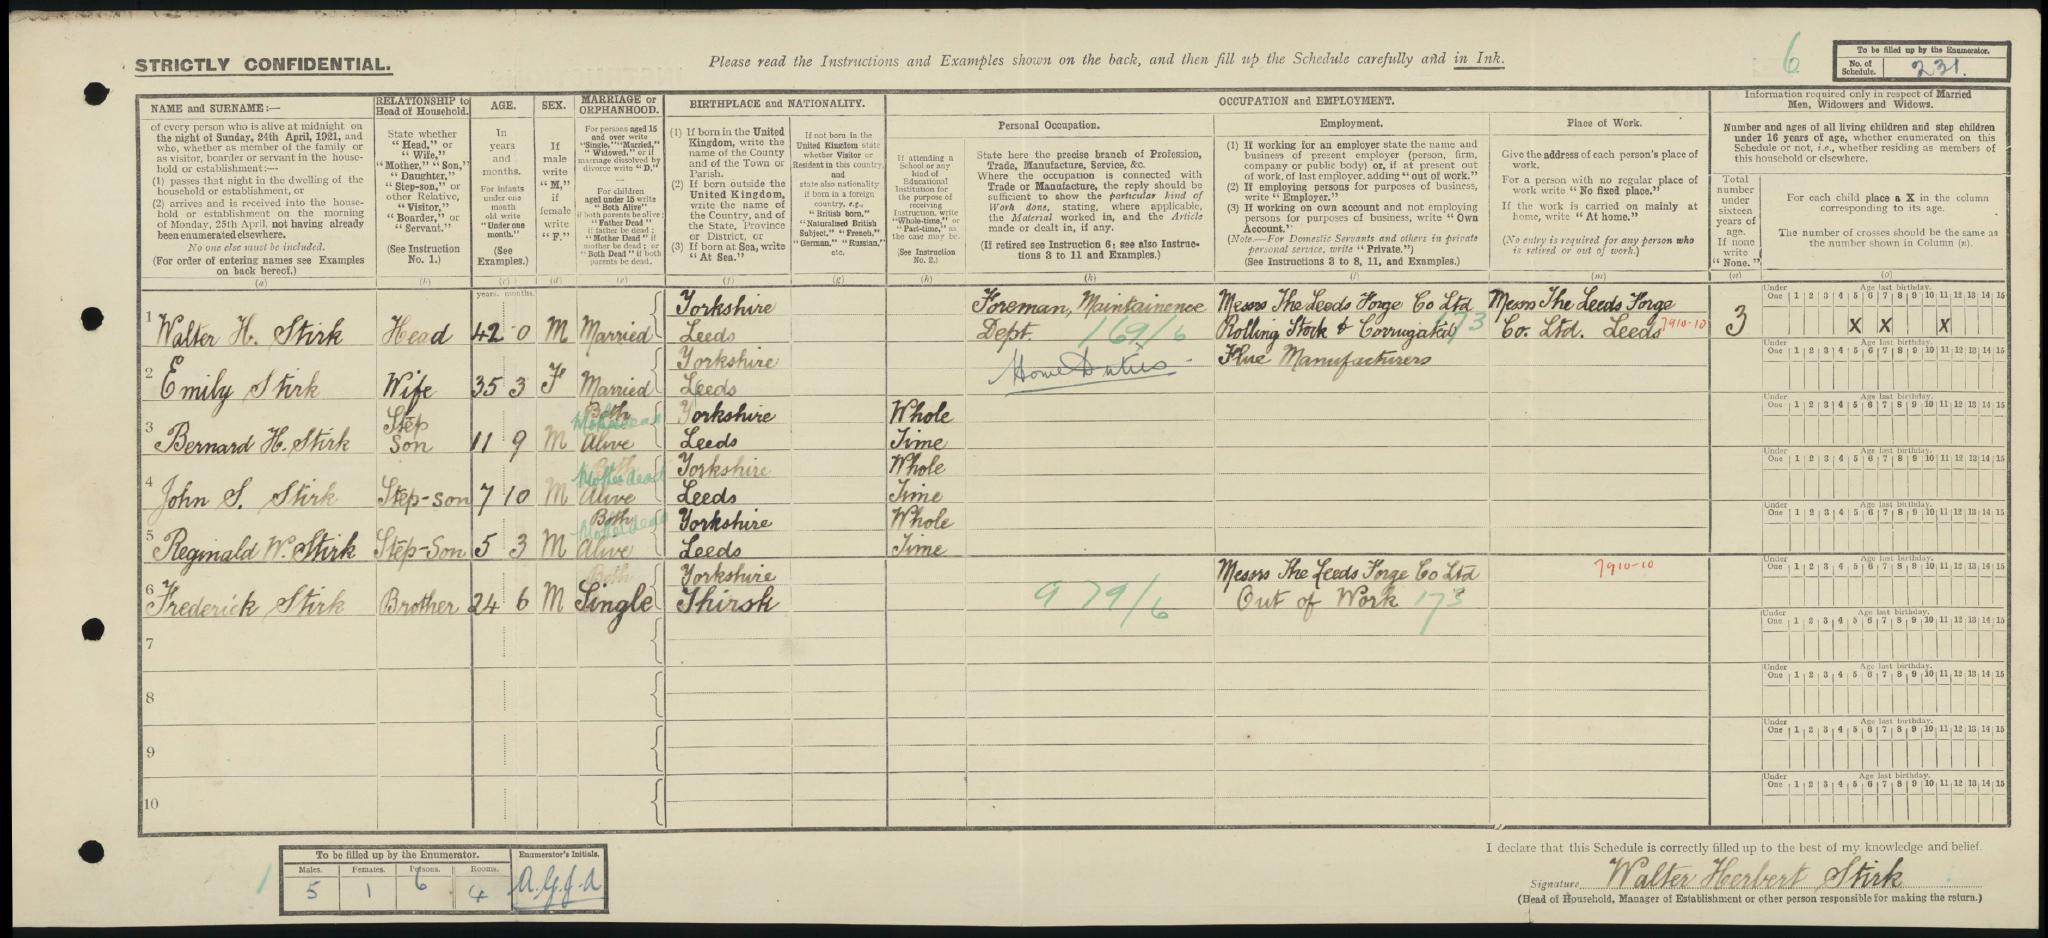 STRICTLY CONFIDENTIAL.
Please read the Instructions and Examples shown on the back, and then fill up the Schedule carefully and in Ink.
6
To be filled up by the Enumerator.
No. of Schedule. 231.
NAME and SURNAME:—
of every person who is alive at midnight on
the night of Sunday, 24th April, 1921, and
who, whether as member of the family or
as visitor, boarder or servant in the house-
hold or establishment:—
(1) passes that night in the dwelling of the
household or establishment, or
(2) arrives and is received into the house-
hold or establishment on the morning
of Monday, 25th April, not having already
been enumerated elsewhere.
No one else must be included.
(For order of entering names see Examples
on back hereof.)
(a)
RELATIONSHIP to
Head of Household.
State whether
"Head," or
"Wife,"
"Mother," "Son,"
"Daughter,"
"Step-son," or
other Relative,
"Visitor,"
"Boarder," or
"Servant."
(See Instruction
No. 1.)
(b)
AGE.
In
years
and
months.
For infants
under one
month
old write
"Under one
month."
(See
Examples.)
(c)
SEX.
If
male
write
"M,"
if
female
write
"F."
(d)
MARRIAGE or
ORPHANHOOD.
For persons aged 15
and over write
"Single," "Married,"
"Widowed," or if
marriage dissolved by
divorce write "D."
For children
aged under 15 write
"Both Alive"
if both parents be alive;
"Father Dead"
if father be dead;
"Mother Dead" if
mother be dead; or
"Both Dead" if both
parents be dead.
(e)
BIRTHPLACE and NATIONALITY.
(1) If born in the United
Kingdom, write the
name of the County
and of the Town or
Parish.
(2) If born outside the
United Kingdom,
write the name of
the Country, and of
the State, Province
or District, or
(3) If born at Sea, write
"At Sea."
(f)
If not born in the
United Kingdom state
whether Visitor or
Resident in this country,
and
state also nationality
if born in a foreign
country, e.g.,
"British born,"
"Naturalised British
Subject," "French,"
"German," "Russian,"
etc.
(g)
OCCUPATION and EMPLOYMENT.
If attending a
School or any
kind of
Educational
Institution for
the purpose of
receiving
Instruction, write
"Whole-time," or
"Part-time," as
the case may be.
(See Instruction
No. 2.)
(h)
Personal Occupation.
State here the precise branch of Profession,
Trade, Manufacture, Service, &c.
Where the occupation is connected with
Trade or Manufacture, the reply should be
sufficient to show the particular kind of
Work done, stating, where applicable,
the Material worked in, and the Article
made or dealt in, if any.
(If retired see Instruction 6; see also Instruc-
tions 3 to 11 and Examples.)
(k)
Employment.
(1) If working for an employer state the name and
business of present employer (person, firm,
company or public body) or, if at present out
of work, of last employer, adding "out of work."
(2) If employing persons for purposes of business,
write "Employer."
(3) If working on own account and not employing
persons for purposes of business, write "Own
Account."
(Note.—For Domestic Servants and others in private
personal service, write "Private.")
(See Instructions 3 to 8, 11, and Examples.)
(l)
Place of Work.
Give the address of each person's place of
work.
For a person with no regular place of
work write "No fixed place."
If the work is carried on mainly at
home, write "At home."
(No entry is required for any person who
is retired or out of work.)
(m)
Information required only in respect of Married
Men, Widowers and Widows.
Number and ages of all living children and step children
under 16 years of age, whether enumerated on this
Schedule or not, i.e., whether residing as members of
this household or elsewhere.
Total
number
under
sixteen
years of
age.
If none
write
"None."
(n)
For each child place a X in the column
corresponding to its age.
The number of crosses should be the same as
the number shown in Column (n).
(o)
years. months.
Under One Age last birthday. 1 2 3 4 5 6 7 8 9 10 11 12 13 14 15
1 Walter H. Stirk Head 42 0 M Married Yorkshire Leeds
Foreman, Maintainence Dept. 169/6
Messrs The Leeds Forge Co Ltd
Rolling Stock & Corrugated 173
Flue Manufacturers
Messrs The Leeds Forge
Co. Ltd. Leeds 7910-10
3 X X X
Under One Age last birthday. 1 2 3 4 5 6 7 8 9 10 11 12 13 14 15
2 Emily Stirk Wife 35 3 F Married Yorkshire Leeds Home Duties
Under One Age last birthday. 1 2 3 4 5 6 7 8 9 10 11 12 13 14 15
3 Bernard H. Stirk Step Son 11 9 M Both Alive Mother dead Yorkshire Leeds Whole Time
Under One Age last birthday. 1 2 3 4 5 6 7 8 9 10 11 12 13 14 15
4 John S. Stirk Step-son 7 10 M Both Alive Mother dead Yorkshire Leeds Whole Time
Under One Age last birthday. 1 2 3 4 5 6 7 8 9 10 11 12 13 14 15
5 Reginald W. Stirk Step-Son 5 3 M Both Alive Mother dead Yorkshire Leeds Whole Time
Under One Age last birthday. 1 2 3 4 5 6 7 8 9 10 11 12 13 14 15
6 Frederick Stirk Brother 24 6 M Both Single Yorkshire Thirsk 979/6
Messrs The Leeds Forge Co Ltd
Out of Work 173
7910-10
Under One Age last birthday. 1 2 3 4 5 6 7 8 9 10 11 12 13 14 15
7
Under One Age last birthday. 1 2 3 4 5 6 7 8 9 10 11 12 13 14 15
8
Under One Age last birthday. 1 2 3 4 5 6 7 8 9 10 11 12 13 14 15
9
Under One Age last birthday. 1 2 3 4 5 6 7 8 9 10 11 12 13 14 15
10
Under One Age last birthday. 1 2 3 4 5 6 7 8 9 10 11 12 13 14 15
1
To be filled up by the Enumerator.
Males. Females. Persons. Rooms.
5 1 6 4
Enumerator's Initials.
A.G.J.A
I declare that this Schedule is correctly filled up to the best of my knowledge and belief.
Signature Walter Herbert Stirk
(Head of Household, Manager of Establishment or other person responsible for making the return.)